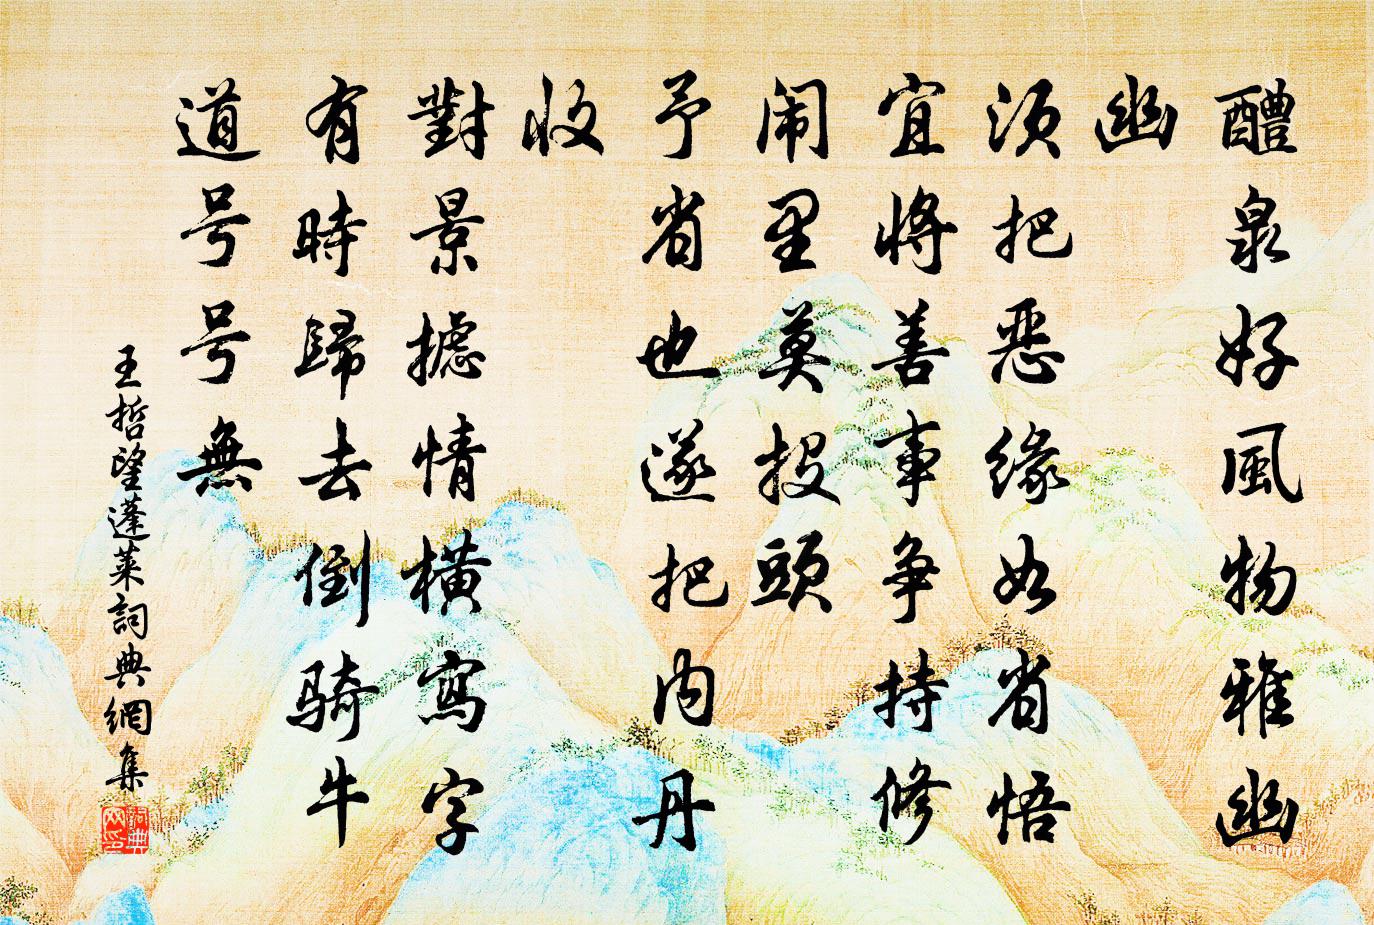 醴泉好風物雅幽
幽
須把惡緣如省悟
宜將善事爭持修
闹里莫投頭
予省也遂把内丹
收
對景摅情橫寫字
有時歸去倒騎牛
道号号無
王哲望蓬萊詞典網集